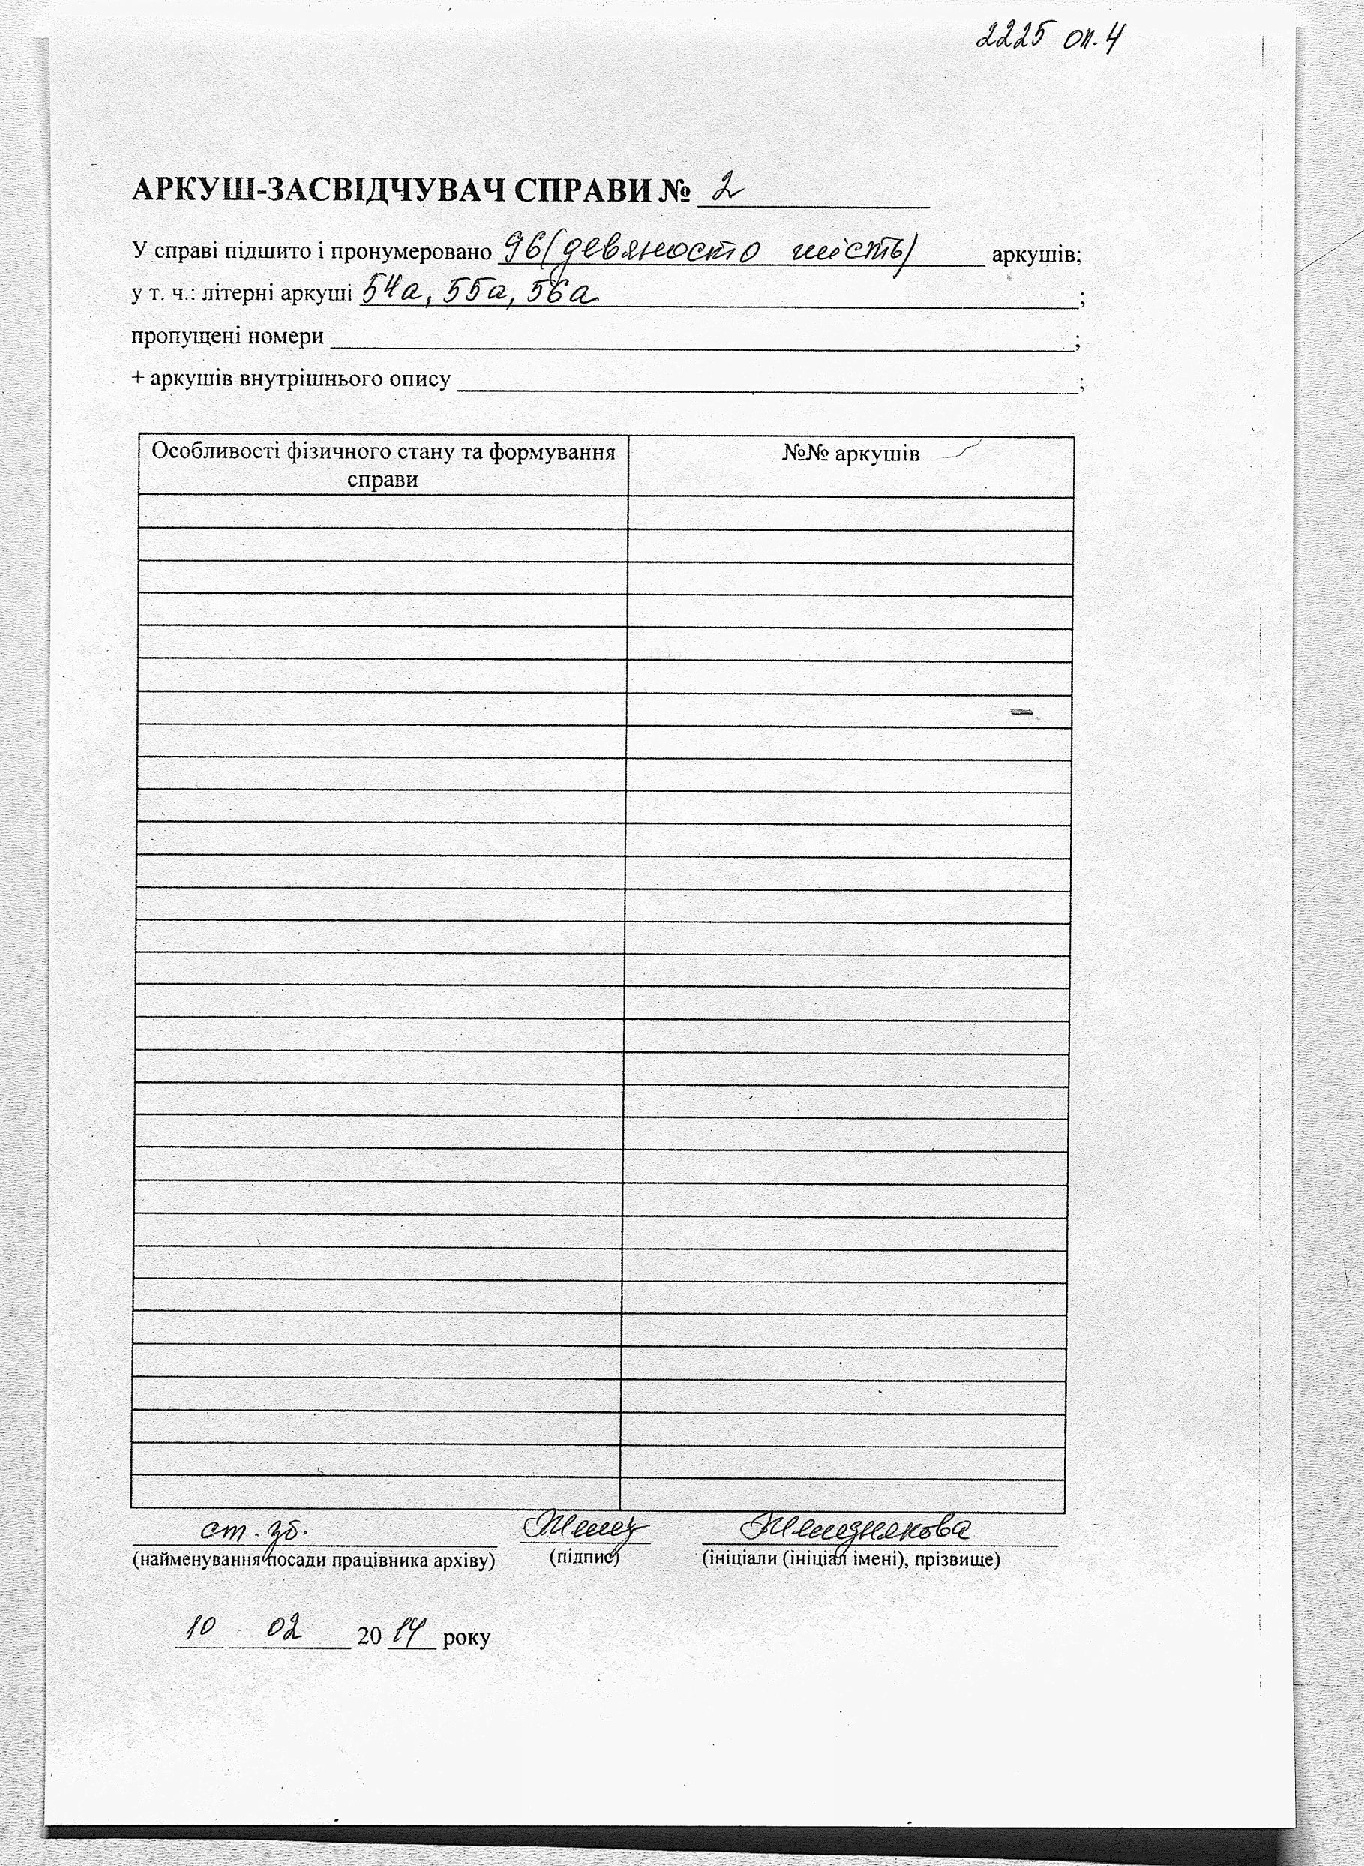 2225 оп. 4
АРКУШ-ЗАСВІДЧУВАЧ СПРАВИ № 2
У справі підшито і пронумеровано 96 (девяносто шість) аркушів;
у т. ч.: літерні аркуші 54а, 55а, 56а ;
пропущені номери ;
+ аркушів внутрішнього опису ;
Особливості фізичного стану та формування №№ аркушів
справи
ст. зб. Железнякова
(найменування посади працівника архіву) (підпис) (ініціали (ініціал імені), прізвище)
10 02 2014 року